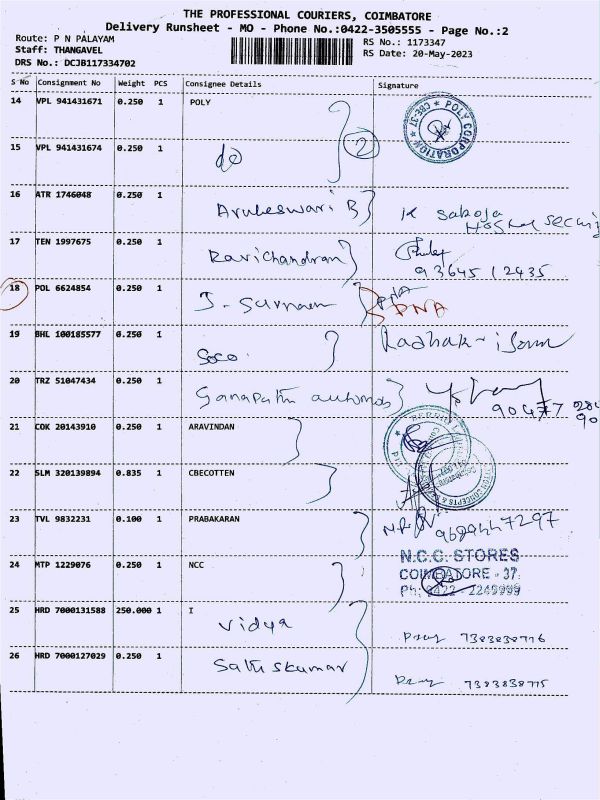 THE PROFESSIONAL COURIERS, COIMBATORE
Delivery Runsheet - MO - Phone No.:0422-3505555 - Page No.:2
Route: P N PALAYAM
Staff: THANGAVEL
DRS No.: DCJB117334702
RS No.: 1173347
RS Date: 20-May-2023
S No Consignment No Weight PCS Consignee Details Signature
14 VPL 941431671 0.250 1 POLY
POLY CORPORATION ★ CBE-37 ★
2
15 VPL 941431674 0.250 1 do
16 ATR 1746048 0.250 1 Aruheswari B
K Saroja
17 TEN 1997675 0.250 1 Ravichandran
9364512435
18 POL 6624854 0.250 1 J-
DNA
DNA
19 BHL 100185577 0.250 1 Soco
20 TRZ 51047434 0.250 1 Ganapathi
21 COK 20143910 0.250 1 ARAVINDAN
22 SLM 320139894 0.835 1 CBECOTTEN
23 TVL 9832231 0.100 1 PRABAKARAN
24 MTP 1229076 0.250 1 NCC
N.C.C. STORES
COIMBATORE - 37
Ph: 0422 - 2249999
25 HRD 7000131588 250.000 1 I
Vidya
26 HRD 7000127029 0.250 1 Sathiskumar